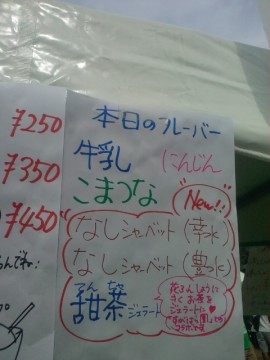 本日のフレーバー
¥250
牛乳 にんじん
¥350
こまつな
"New!!"
¥450
なしシャーベット(幸水)
なしシャーベット(豊水)
てん ちゃ
甜茶ジェラート
花ふんしょうに
きくお茶を
ジェラートに♥